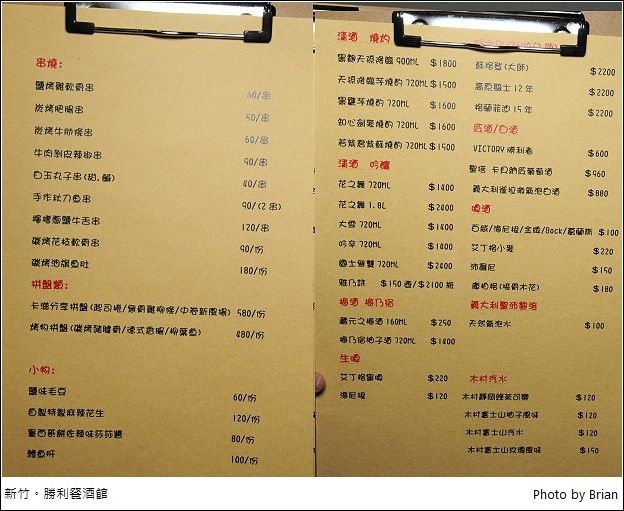 串燒:
鹽烤雞軟骨串 60/串
炭烤肥腸串 50/串
炭烤牛肋燒串 60/串
牛肉剝皮辣椒串 90/串
白玉丸子串(甜.鹹) 40/串
手作秋刀魚串 90/(2串)
檸檬蔥鹽牛舌串 120/串
碳烤花枝軟骨串 90/份
碳烤油旗魚肚 180/份
拼盤類:
卡滋分享拼盤(起司捲/無骨雞柳條/中卷新風場) 580/份
烤物拼盤(碳烤豬腱骨/德式香腸/柳葉魚) 480/份
小物:
鹽味毛豆 60/份
自製特製麻辣花生 120/份
墨西哥餅佐辣味莎莎醬 80/份
鱈魚肝 100/份
清酒 燒灼
黑麴天視降臨 900ML $1800
天視降臨芋燒酌 720ML $1500
黑鹽芋燒酌 720ML $1600
如心劍菱燒酌 720ML $1600
若紫君紫蘇燒酌 720ML $1500
清酒 吟釀
花之舞 720ML $1400
花之舞 1.8L $2400
大雪 720ML $1400
吟辛 720ML $1400
國士無雙 720ML $2400
雅乃詩 $150壺/$2100瓶
梅酒 梅乃宿
藏元之梅酒 160ML $250
梅乃宿柚子酒 720ML $1400
生啤
艾丁格黑啤 $220
海尼根 $120
蘇格登(大師) $2200
高原騎士 12 年 $2200
格蘭菲迪 15 年 $2200
紅酒/白酒
VICTORY 勝利者 $600
聖塔 卡貝納紅葡萄酒 $960
義大利雀拉微氣泡白酒 $880
啤酒
百威/海尼根/金牌/Bock/麒麟斯 $100
艾丁格小麥 $220
沛羅尼 $150
唐柏格(接骨木花) $180
義大利聖沛黎洛
天然氣泡水 $100
木村汽水
木村靜岡綠茶可樂 $120
木村富士山柚子風味 $120
木村富士山汽水 $120
木村富士山玫瑰風味 $150
新竹。勝利餐酒館
Photo by Brian